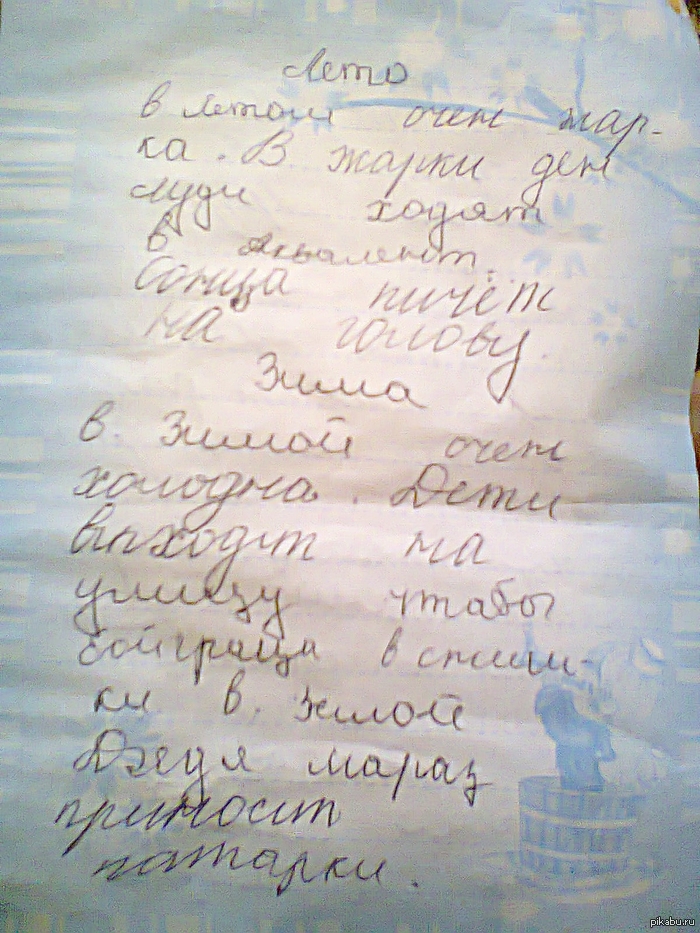 Лето
в летом очен жар-
ка. В жарки ден
луди ходят
в аквалент.
Сонца пичёт
на голову.
Зима
в. Зимой очен
холодна. Дети
выходят на
улицу чтабы
сойграца в снеш-
ки в. Зимой
Дедя мараз
приносит
патарки.
pikabu.ru